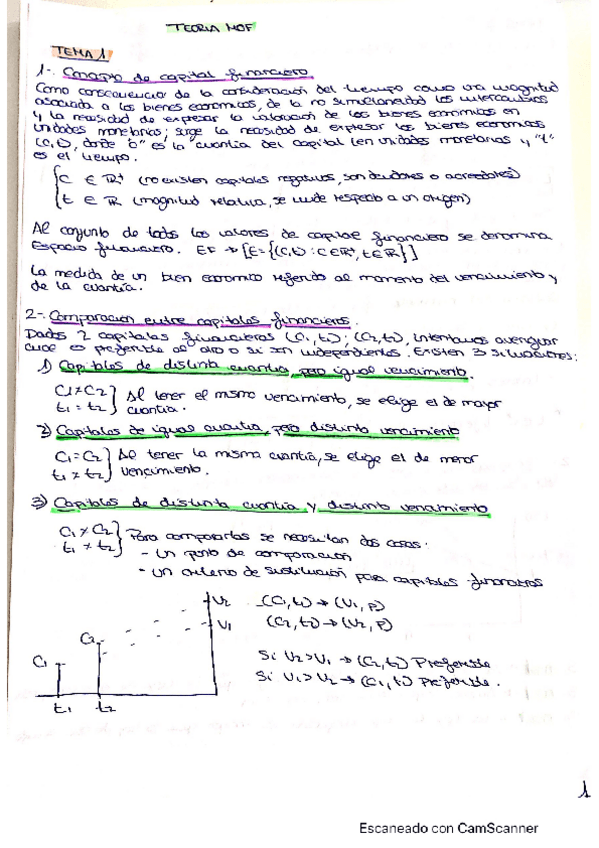 TEORIA MOF
TEMA 1
1-. Concepto de capital financiero
Como consecuencia de la consideración del tiempo como una magnitud
asociada a los bienes economicos, de la no simultaneidad los intercambios
y la necesidad de expresar la valoración de los bienes economicos en
unidades monetarias; surge la necesidad de expresar los bienes economicos
(C,t), donde "c" es la cuantía del capital (en unidades monetarias y "t"
es el tiempo.
C ∈ R+ (no existen capitales negativos, son deudores o acreedores)
t ∈ R (magnitud relativa, se mide respecto a un origen)
Al conjunto de todos los valores de capital financiero se denomina
Espacio financiero. EF → [E={(C,t): C∈R+, t∈R}]
La medida de un bien economico referido al momento del vencimiento y
de la cuantía.
2-. Comparación entre capitales financieros.
Dados 2 capitales financieros (C1, t1); (C2, t2), intentamos averiguar
cual es preferible al otro o si son independientes. Existen 3 situaciones:
1) Capitales de distinta cuantia, pero igual vencimiento.
C1≠C2
t1 = t2 } Al tener el mismo vencimiento, se elige el de mayor
cuantia.
2) Capitales de igual cuantia, pero distinto vencimiento
C1=C2
t1 ≠ t2 } Al tener la misma cuantía, se elige el de menor
vencimiento.
3) Capitales de distinta cuantia y distinto vencimiento
C1 ≠ C2
t1 ≠ t2 } Para compararlas se necesitan dos cosas:
- Un punto de comparación
- Un criterio de sustitución para capitales financieros
V2
V1
C2
C1
t1 t2
(C1, t1) → (V1, p)
(C2, t2) → (V2, p)
Si V2>V1 → (C2, t2) Preferible
Si V1>V2 → (C1, t1) preferible.
1
Escaneado con CamScanner